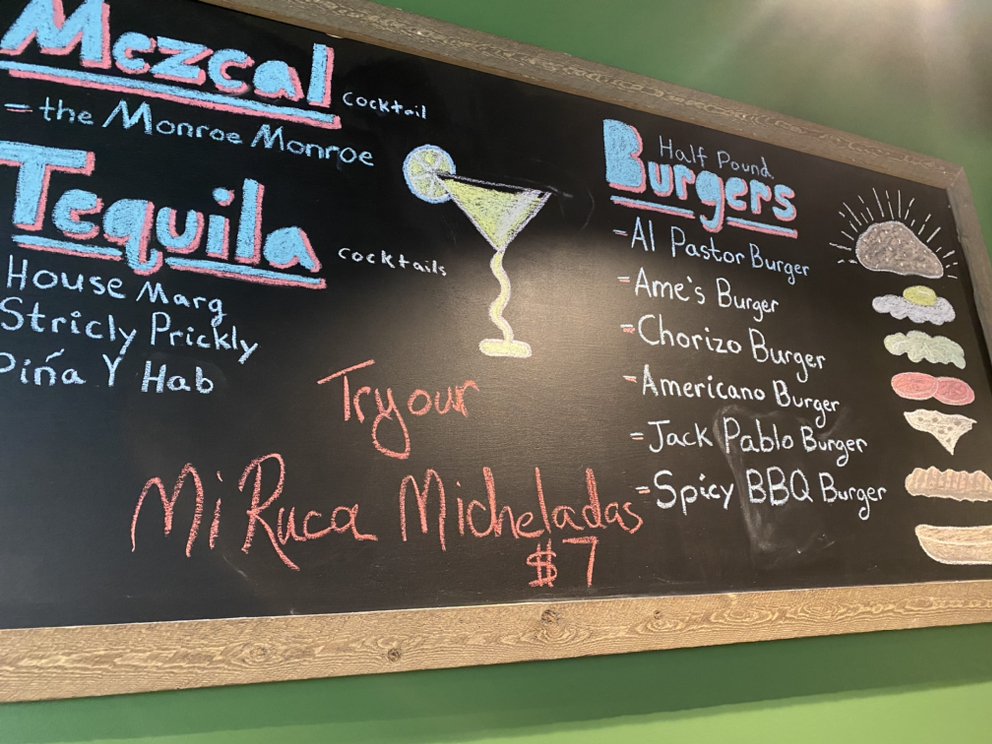 Mezcal cocktail
= the Monroe Monroe
Tequila cocktails
House Marg
Stricly Prickly
Piña Y Hab
Try our
Mi Ruca Micheladas
$7
Half Pound
Burgers
= Al Pastor Burger
= Ame's Burger
= Chorizo Burger
= Americano Burger
= Jack Pablo Burger
= Spicy BBQ Burger